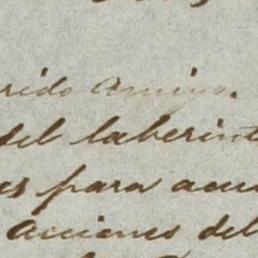 rido amigo.
del laberint
es para acu
acciones del